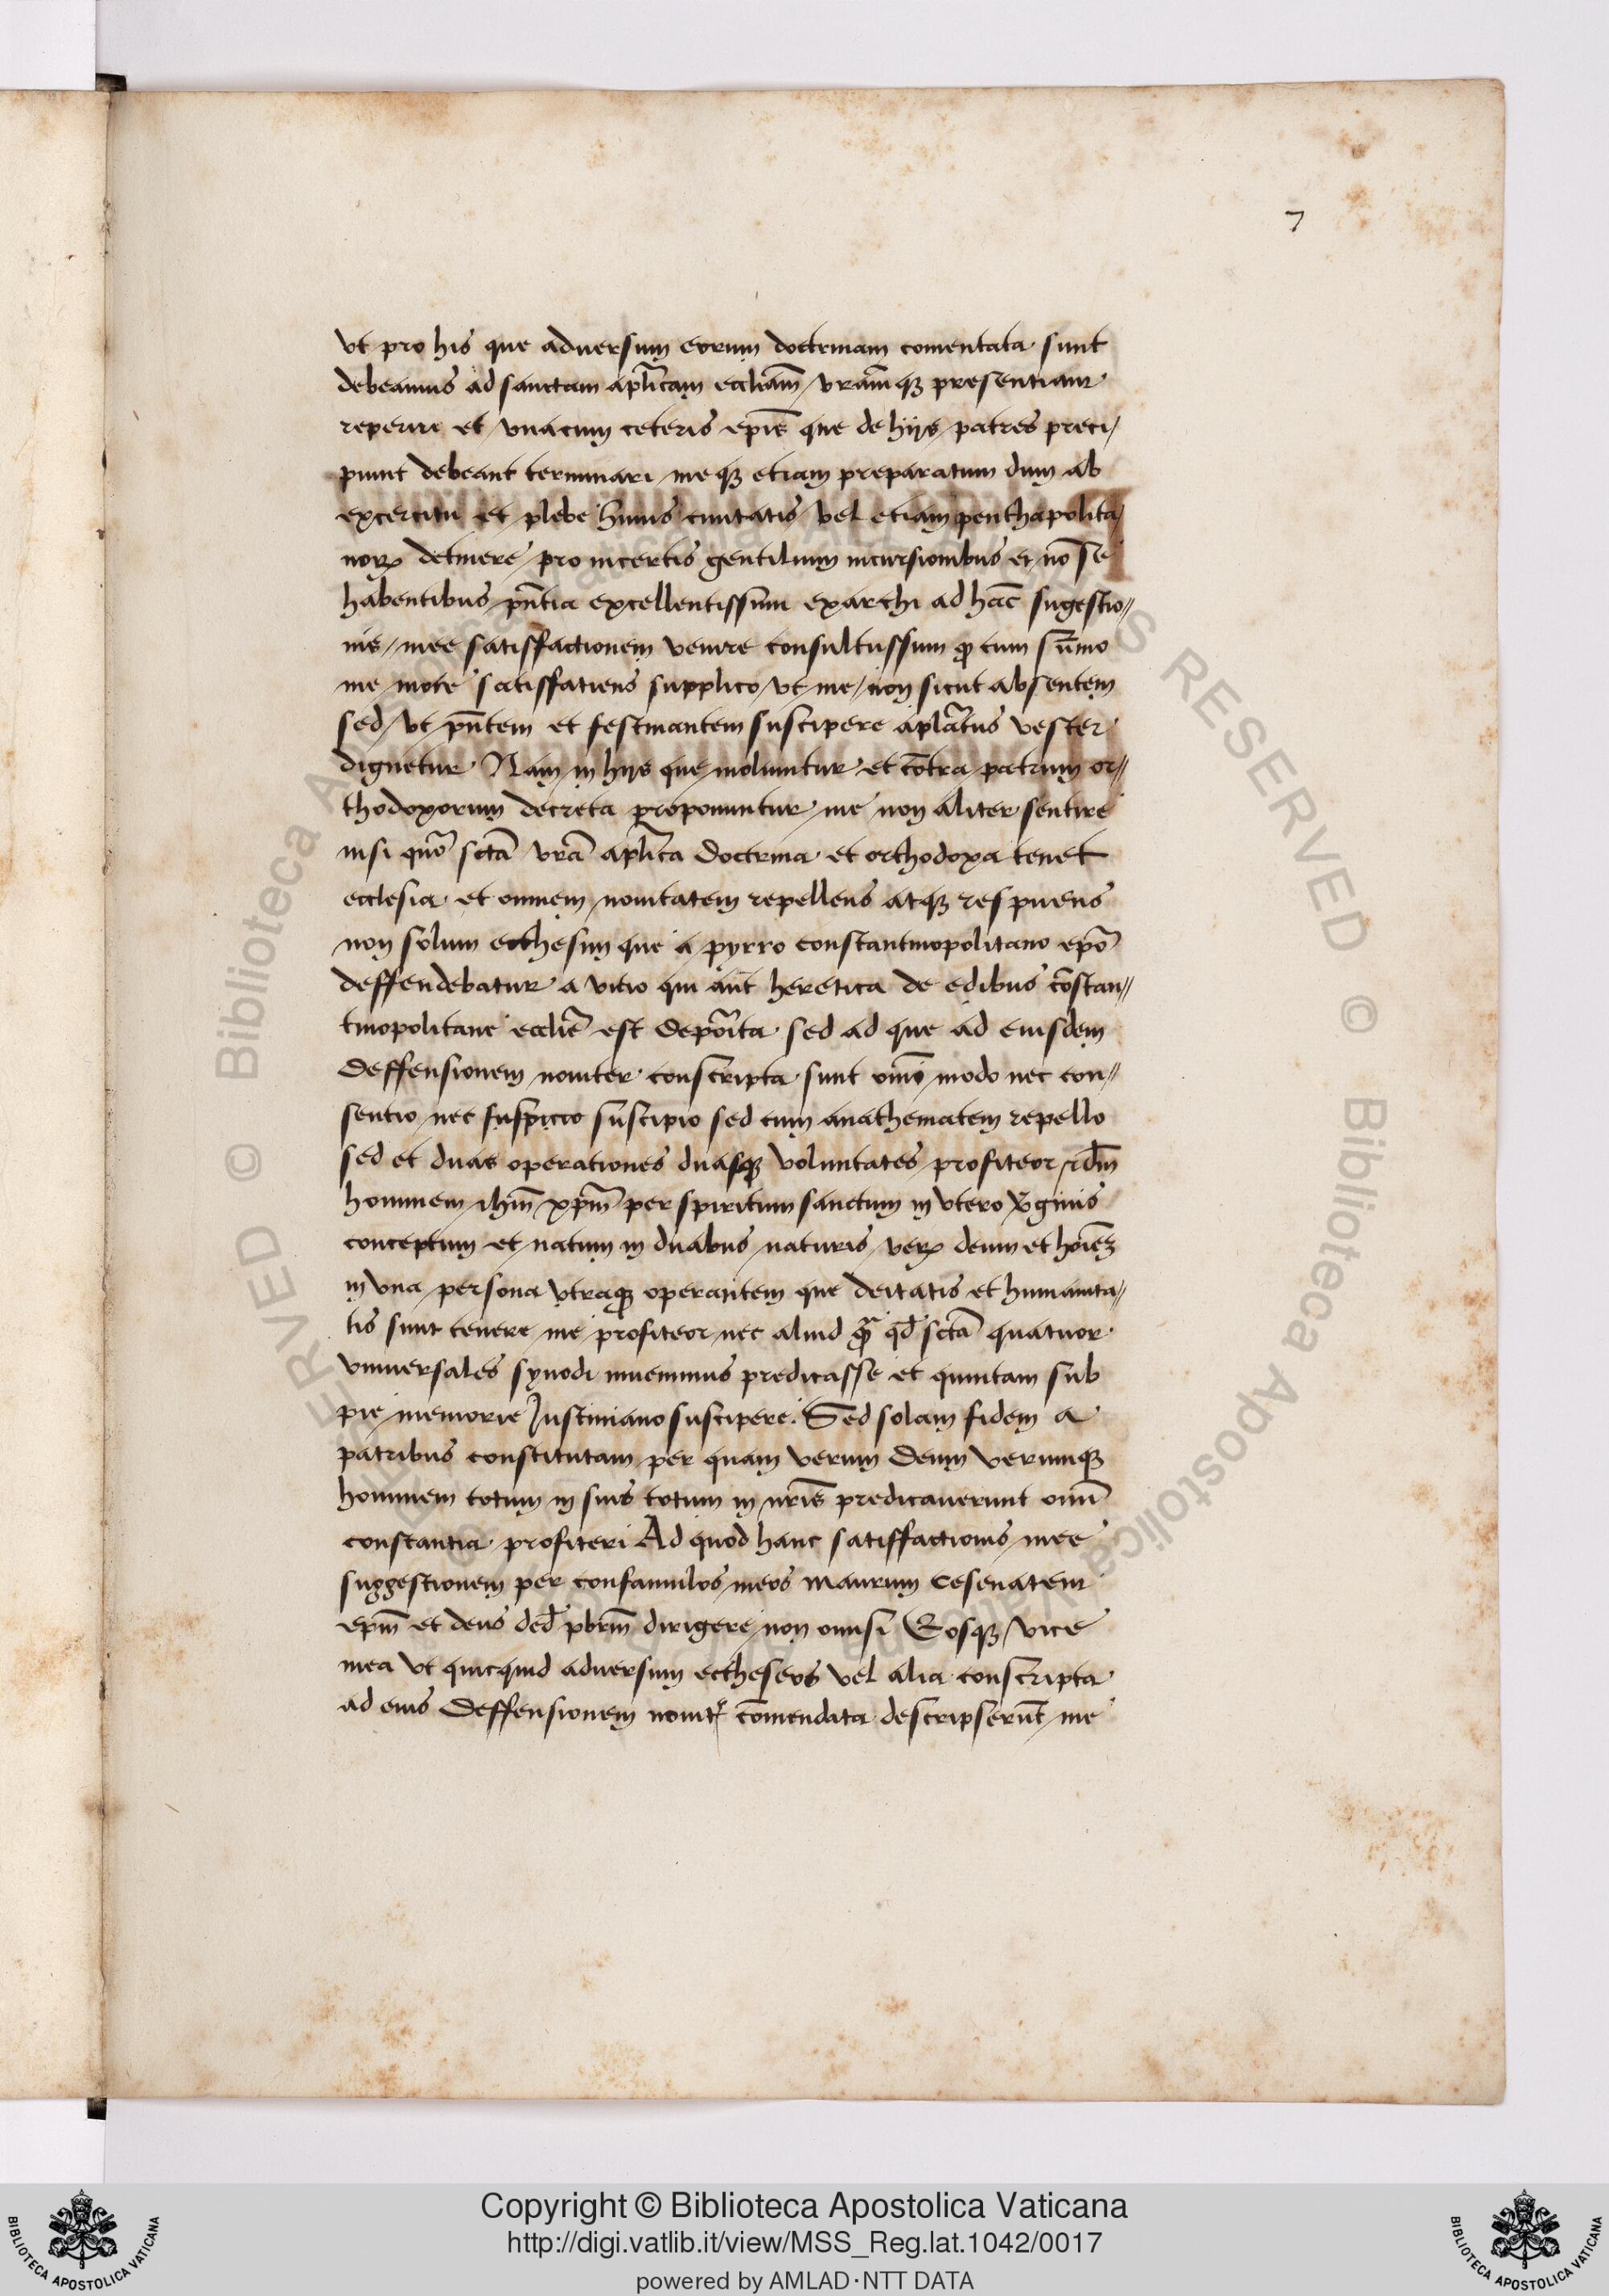 7
vt pro his que aduersum eorum doctrinam comentata sunt
debeamus ad sanctam aplicam eccliam vramqz presentiam
reperiri et vnacum ceteris epis que de hijs patres preci
piunt debeant terminari meqz etiam preparatum dum ab
excercitu et plebe huius ciuitatis vel etiam penthapolita
norum detinere pro incertis gentilium incursionibus et no se
habentibus pntia excellentissimi exarchi ad hac sugestio
nis mee satisffactionem venire consultissum cum sumo
me more satisffatiens supplico vt me non sicut absentem
sed vt pntem et festinantem suscipere aplatus vester
dignetur Nam in hijs que moliuntur et cotra patrum or
thodoxorum decreta proponuntur me non aliter sentire
nisi quo scta vra aplica doctrina et orthodoxa tenet
ecclesia et omnem nouitatem repellens atqz respuens
non solum ecthesim que a pyrro constantinopolitano epo
deffendebatur a vitio qui aut heretica de edibus costan
tinopolitane ecclie est deporita sed ad que ad eiusdem
deffensionem nouiter conscripta sunt omni modo nec con
sentio nec suspicio suscipio sed cum anathematem repello
sed et duas operationes duasqz voluntates profiteor
hominem ihm xpm per spiritum sanctum in vtero virginis
conceptum et natum in duabus naturis verum deum et hoiez
in vna persona vtraqz operantem que deitatis et humanita
tis sunt tenere me profiteor nec aliud qd scta quatuor
vniuersales synodi inuenimus predicasse et quintam sub
pie memorie Justiniano suscipere. Sed solam fidem a
patribus constitutam per quam verum deum verumqz
hominem totum in suis totum in nris predicauerunt omi
constantia profiteri Ad quod hanc satisffactionis mee
suggestionem per confamulos meos maurum cesenatem
epm et deus ded pbrm dirigere non omisi Eosqz vice
mea vt quicquid aduersum ectheseos vel alia conscripta
ad eius deffensionem nouitr comendata descripserut me
© Biblioteca Apostolica Vaticana
RIGHTS RESERVED © Biblioteca Apostolica Vaticana
Copyright © Biblioteca Apostolica Vaticana
http://digi.vatlib.it/view/MSS_Reg.lat.1042/0017
powered by AMLAD·NTT DATA
BIBLIOTECA APOSTOLICA VATICANA
BIBLIOTECA APOSTOLICA VATICANA